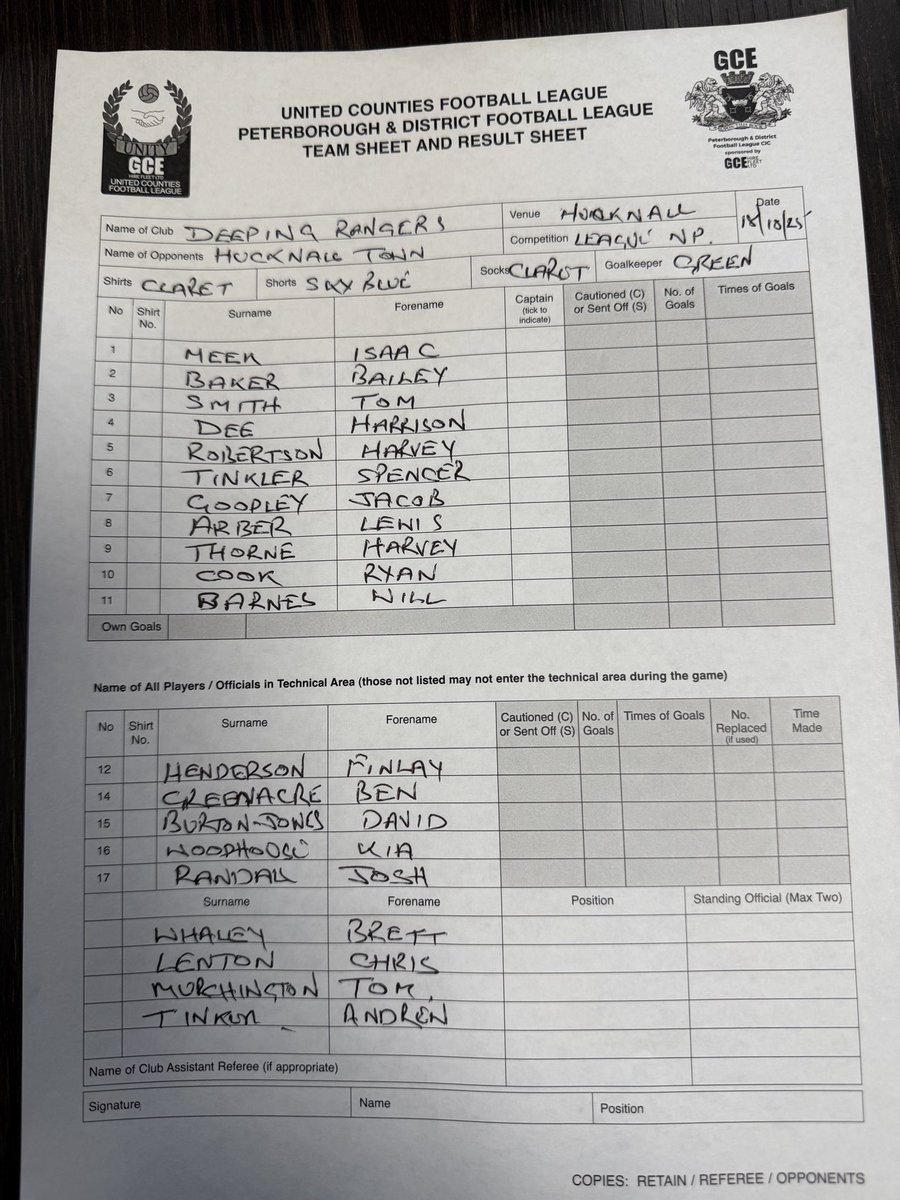 UNITY
GCE
HIRE FLEET LTD
UNITED COUNTIES
FOOTBALL LEAGUE
UNITED COUNTIES FOOTBALL LEAGUE
PETERBOROUGH & DISTRICT FOOTBALL LEAGUE
TEAM SHEET AND RESULT SHEET
GCE
Peterborough & District
Football League CIC
sponsored by
GCE HIRE FLEET LTD
Name of Club DEEPING RANGERS Venue HUCKNALL Date 18/10/25
Name of Opponents HUCKNALL TOWN Competition LEAGUE NP.
Shirts CLARET Shorts SKY BLUE Socks CLARET Goalkeeper GREEN
No Shirt No. Surname Forename Captain (tick to indicate) Cautioned (C) or Sent Off (S) No. of Goals Times of Goals
1 MEEK ISAAC
2 BAKER BAILEY
3 SMITH TOM
4 DEE HARRISON
5 ROBERTSON HARVEY
6 TINKLER SPENCER
7 GOOPLEY JACOB
8 ARBER LEWIS
9 THORNE HARVEY
10 COOK RYAN
11 BARNES WILL
Own Goals
Name of All Players / Officials in Technical Area (those not listed may not enter the technical area during the game)
No Shirt No. Surname Forename Cautioned (C) or Sent Off (S) No. of Goals Times of Goals No. Replaced (if used) Time Made
12 HENDERSON FINLAY
14 GREENACRE BEN
15 BURTON-JONES DAVID
16 WOODHOUSE KIA
17 RANDALL JOSH
Surname Forename Position Standing Official (Max Two)
WHALEY BRETT
LENTON CHRIS
MURCHINGTON TOM.
ANDREW
Name of Club Assistant Referee (if appropriate)
Signature Name Position
COPIES: RETAIN / REFEREE / OPPONENTS